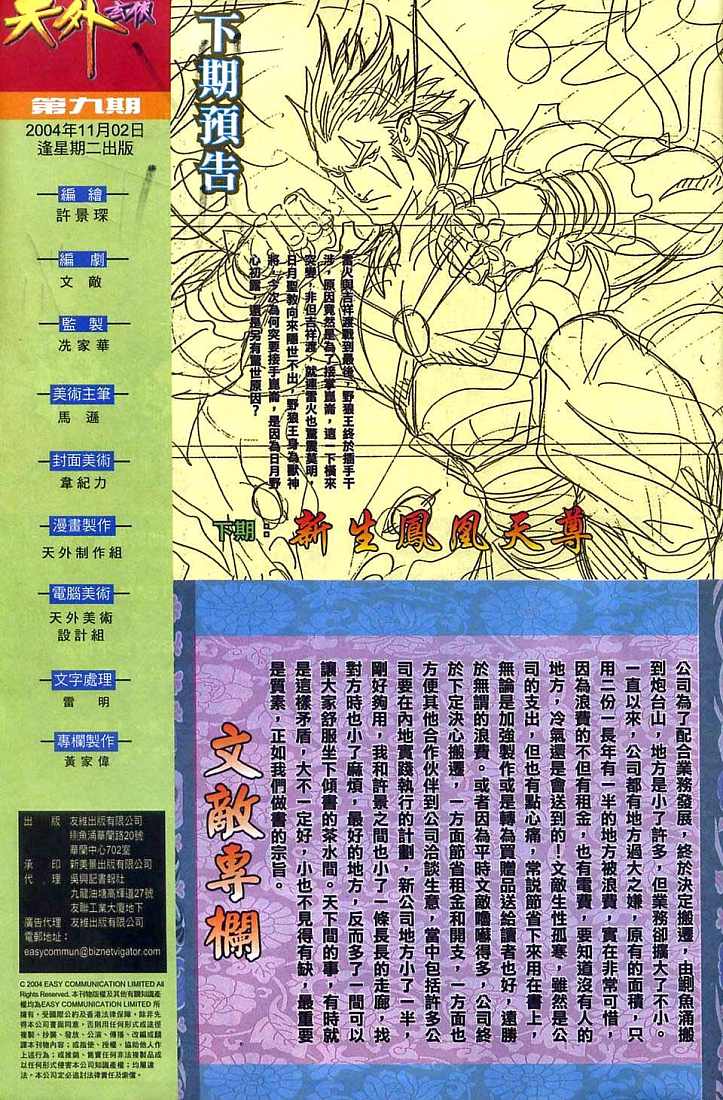 天外玄俠
第九期
2004年11月02日
逢星期二出版
編繪
許景琛
編劇
文敵
監製
冼家華
美術主筆
馬遜
封面美術
韋紀力
漫畫製作
天外制作組
電腦美術
天外美術
設計組
文字處理
雷明
專欄製作
黃家偉
出版 友維出版有限公司
鰂魚涌華蘭路20號
華蘭中心702室
承印 新美景出版有限公司
代理 吳興記書報社
九龍油塘高輝道27號
友聯工業大廈地下
廣告代理 友維出版有限公司
電郵地址：
easycommun@biznetvigator.com
© 2004 EASY COMMUNICATION LIMITED All
Rights Reserved. 本刊物版權及其他有關知識產
權均為EASY COMMUNICATION LIMITED 所
擁有，受國際公約及香港法律保障，除非先
得本公司書面同意，否則用任何形式或途徑
複製、抄襲、發放、公演、傳播、改編或翻
譯本刊物內容；或指使、授權、協助他人作
上述行為；或推銷、售賣任何非法複製品或
以任何形式侵害本公司知識產權；均屬違
法，本公司定必追討法律責任及索償。
下期預告
雷火與吉祥渡戰到最後，野狼王終於插手干
涉，原因竟然是為了接掌崑崙，這一下橫來
突變，非但吉祥渡，就連雷火也驚震莫明，
日月聖教向來隱世不出，野狼王身為獸神
將，今次為何突要接手崑崙，是因為日月野
心初露，還是另有驚世原因？
下期：新生鳳凰天尊
文敵專欄
公司為了配合業務發展，終於決定搬遷，由鰂魚涌搬
到炮台山，地方是小了許多，但業務卻擴大了不小。
一直以來，公司都有地方過大之嫌，原有的面積，只
用二份一長年有一半的地方被浪費，實在非常可惜，
因為浪費的不但有租金，也有電費，要知道沒有人的
地方，冷氣還是會送到的！文敵生性孤寒，雖然是公
司的支出，但也有點心痛，常説節省下來用在書上，
無論是加強製作或是轉為買贈品送給讀者也好，遠勝
於無謂的浪費。或者因為平時文敵嚕囌得多，公司終
於下定決心搬遷，一方面節省租金和開支，一方面也
方便其他合作伙伴到公司洽談生意，當中包括許多公
司要在內地實踐執行的計劃，新公司地方小了一半，
剛好夠用，我和許景之間也小了一條長長的走廊，找
對方時也小了麻煩，最好的地方，反而多了一間可以
讓大家舒服坐下傾書的茶水間。天下間的事，有時就
是這樣矛盾，大不一定好，小也不見得有缺，最重要
是質素，正如我們做書的宗旨。